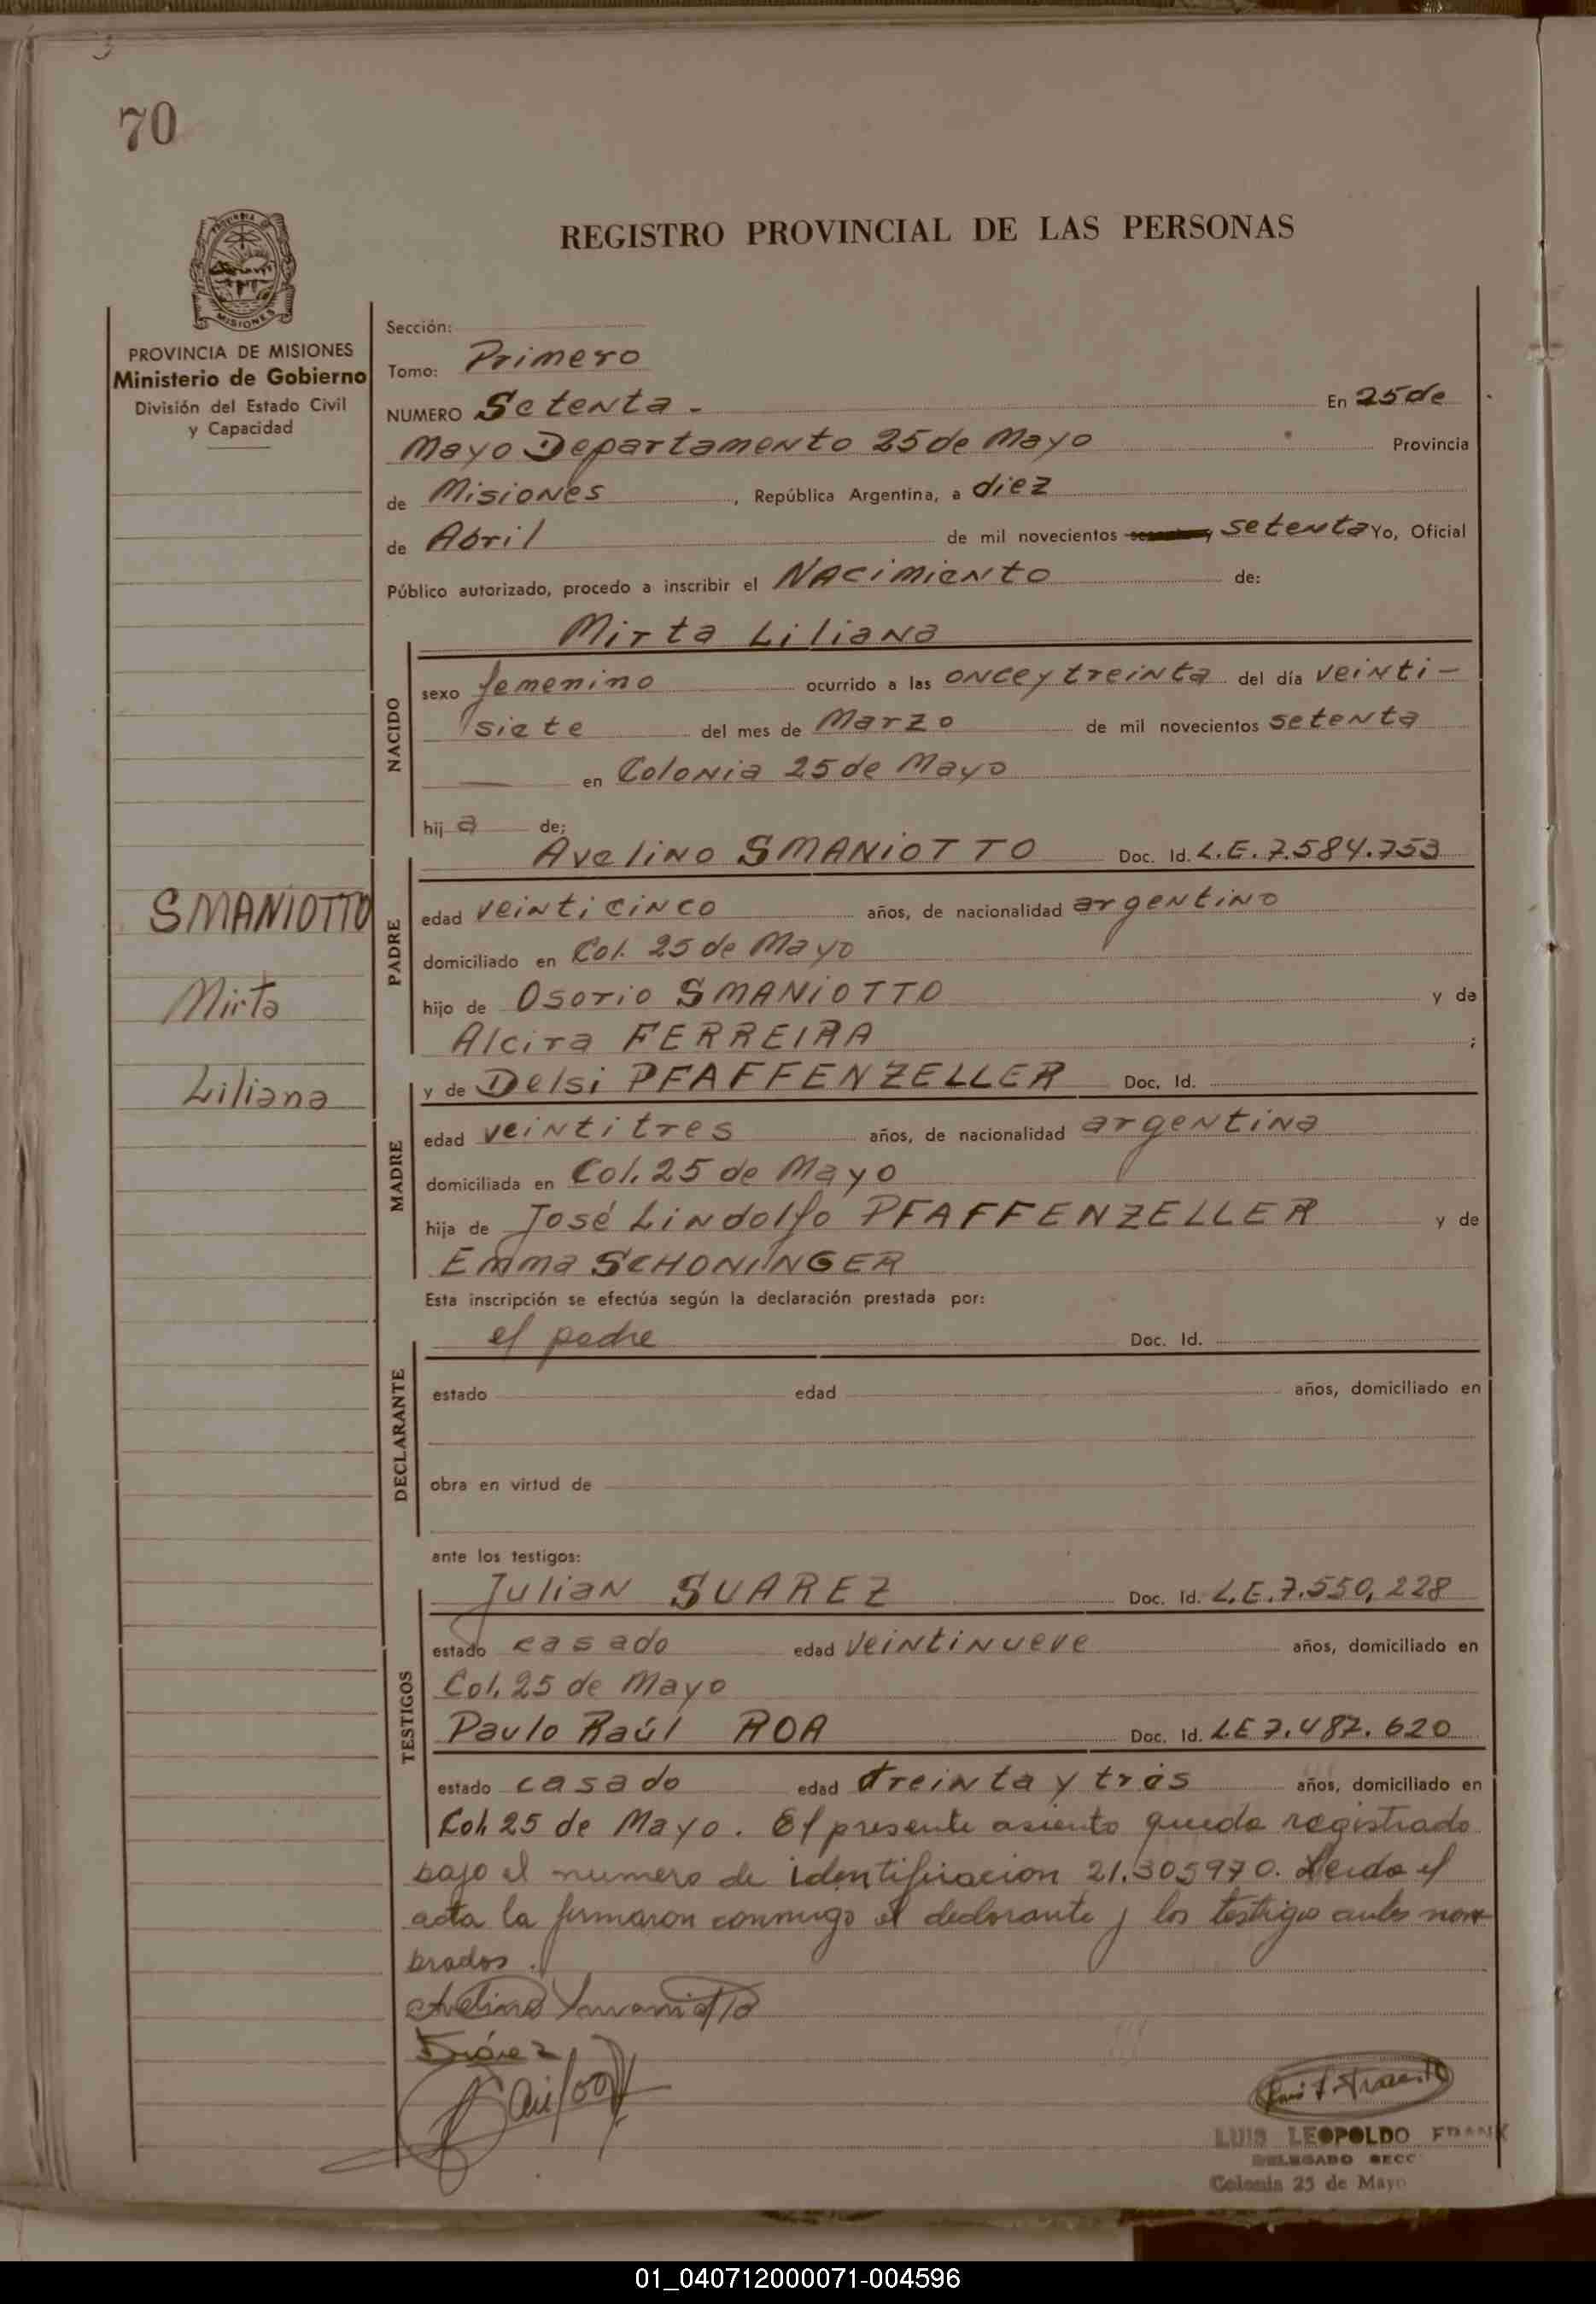 70
REGISTRO PROVINCIAL DE LAS PERSONAS
PROVINCIA DE MISIONES
Ministerio de Gobierno
División del Estado Civil
y Capacidad
SMANIOTTO
Mirta
Liliana
Sección:
Tomo: Primero
NUMERO Setenta - En 25 de
Mayo Departamento 25 de Mayo Provincia
de Misiones, República Argentina, a diez
de Abril de mil novecientos setenta Yo, Oficial
Público autorizado, procedo a inscribir el Nacimiento de:
NACIDO
Mirta Liliana
sexo femenino ocurrido a las once y treinta del día veinti-
siete del mes de Marzo de mil novecientos setenta
en Colonia 25 de Mayo
hija de:
PADRE
Avelino SMANIOTTO Doc. Id. L.E. 7.584.753
edad veinticinco años, de nacionalidad argentino
domiciliado en Col. 25 de Mayo
hijo de Osorio SMANIOTTO y de
Alcira FERREIRA ;
MADRE
y de Delsi PFAFFENZELLER Doc. Id.
edad veintitres años, de nacionalidad argentina
domiciliada en Col. 25 de Mayo
hija de José Lindolfo PFAFFENZELLER y de
Emma SCHONINGER
Esta inscripción se efectúa según la declaración prestada por:
DECLARANTE
el padre Doc. Id.
estado edad años, domiciliado en
obra en virtud de
ante los testigos:
TESTIGOS
Julian SUAREZ Doc. Id. L.E. 7.550,228
estado casado edad veintinueve años, domiciliado en
Col. 25 de Mayo
Paulo Raúl ROA Doc. Id. LE 7.487.620
estado casado edad treinta y tres años, domiciliado en
Col. 25 de Mayo. El presente asiento queda registrado
bajo el numero de identificacion 21.305970. Leida el
acta la firmaron conmigo el declarante y los testigos antes nom-
brados.
Avelino Smaniotto
Suárez
LUIS LEOPOLDO FRANK
DELEGADO SECC
Colonia 25 de Mayo
01_040712000071-004596